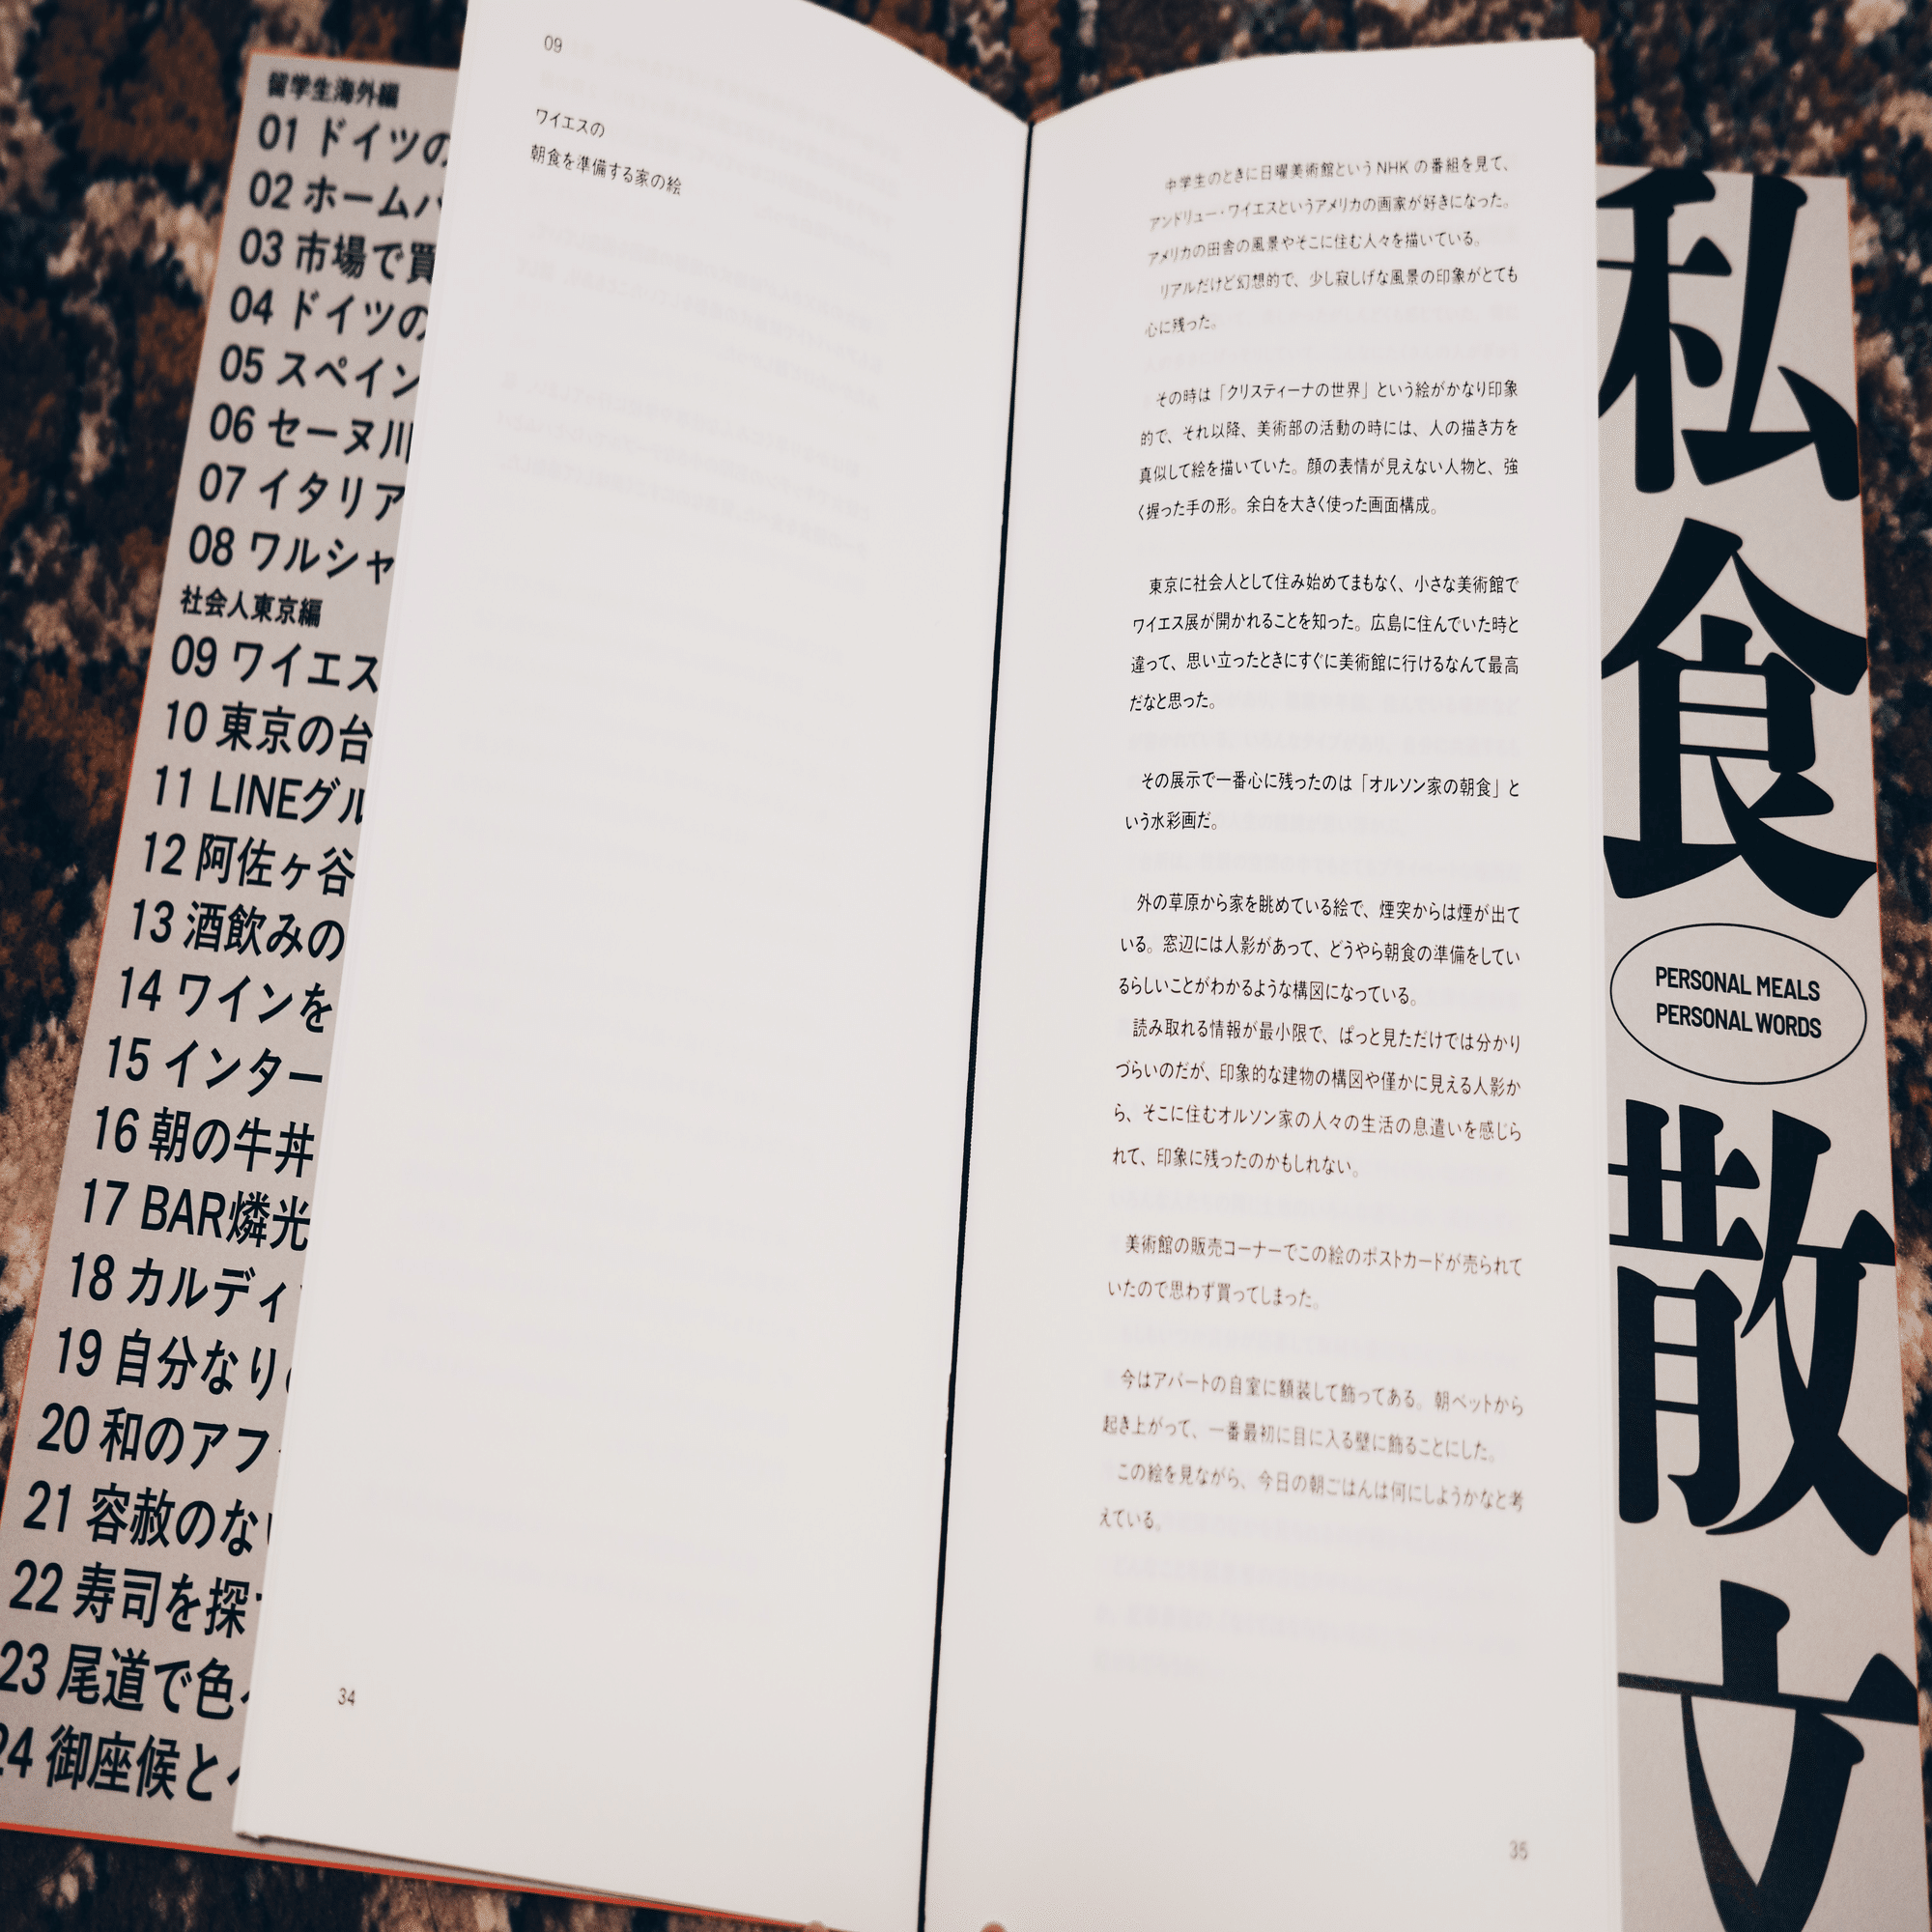 留学生海外編
01 ドイツの
02 ホームパ
03 市場で買
04 ドイツの
05 スペイン
06 セーヌ川
07 イタリア
08 ワルシャ
社会人東京編
09 ワイエス
10 東京の台
11 LINEグル
12 阿佐ヶ谷
13 酒飲みの
14 ワインを
15 インター
16 朝の牛丼
17 BAR燐光
18 カルディ
19 自分なり
20 和のアフ
21 容赦のな
22 寿司を探
23 尾道で色
24 御座候と
09
ワイエスの
朝食を準備する家の絵
34
中学生のときに日曜美術館という NHK の番組を見て、
アンドリュー・ワイエスというアメリカの画家が好きになった。
アメリカの田舎の風景やそこに住む人々を描いている。
リアルだけど幻想的で、少し寂しげな風景の印象がとても
心に残った。
その時は「クリスティーナの世界」という絵がかなり印象
的で、それ以降、美術部の活動の時には、人の描き方を
真似して絵を描いていた。顔の表情が見えない人物と、強
く握った手の形。余白を大きく使った画面構成。
東京に社会人として住み始めてまもなく、小さな美術館で
ワイエス展が開かれることを知った。広島に住んでいた時と
違って、思い立ったときにすぐに美術館に行けるなんて最高
だなと思った。
その展示で一番心に残ったのは「オルソン家の朝食」と
いう水彩画だ。
外の草原から家を眺めている絵で、煙突からは煙が出て
いる。窓辺には人影があって、どうやら朝食の準備をしてい
るらしいことがわかるような構図になっている。
読み取れる情報が最小限で、ぱっと見ただけでは分かり
づらいのだが、印象的な建物の構図や僅かに見える人影か
ら、そこに住むオルソン家の人々の生活の息遣いを感じら
れて、印象に残ったのかもしれない。
美術館の販売コーナーでこの絵のポストカードが売られて
いたので思わず買ってしまった。
今はアパートの自室に額装して飾ってある。朝ベットから
起き上がって、一番最初に目に入る壁に飾ることにした。
この絵を見ながら、今日の朝ごはんは何にしようかなと考
えている。
35
私食散文
PERSONAL MEALS
PERSONAL WORDS